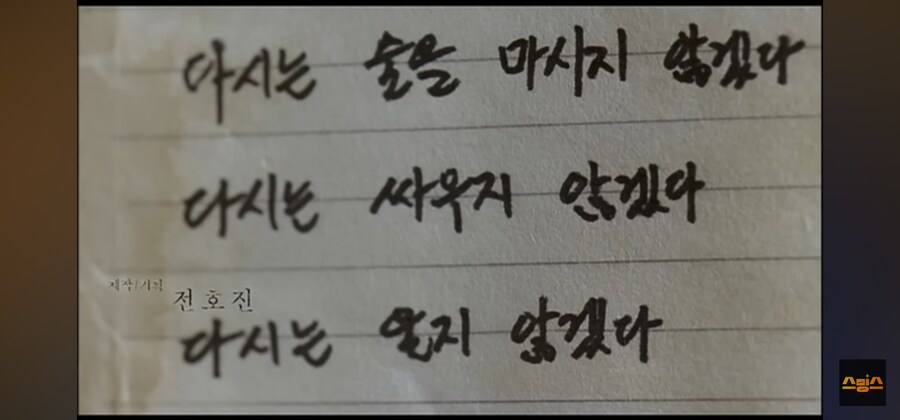 다시는 술을 마시지 않겠다
다시는 싸우지 않겠다
제작/기획
전호진
다시는 울지 않겠다
스밍스